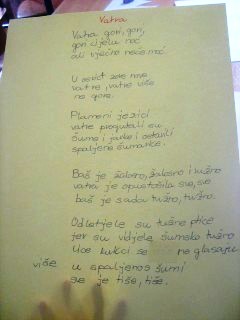 Vatra
Vatra gori, gori,
gori cijelu noć
ali vječno neće moć
U osvit zore nove
vatre, vatre više
ne gore.
Plameni jezici
vatre progutali su
šume i jarke i ostavili
spaljene šumarke.
Baš je žalosno, žalosno i tužno
vatra je opustošila sve, sve
baš je sada tužno, tužno.
Odletjele su tužne ptice
jer su vidjele šumsko tužno
lice kukci se ne glasaju
više u spaljenoj šumi
sve je tiše, tiše.